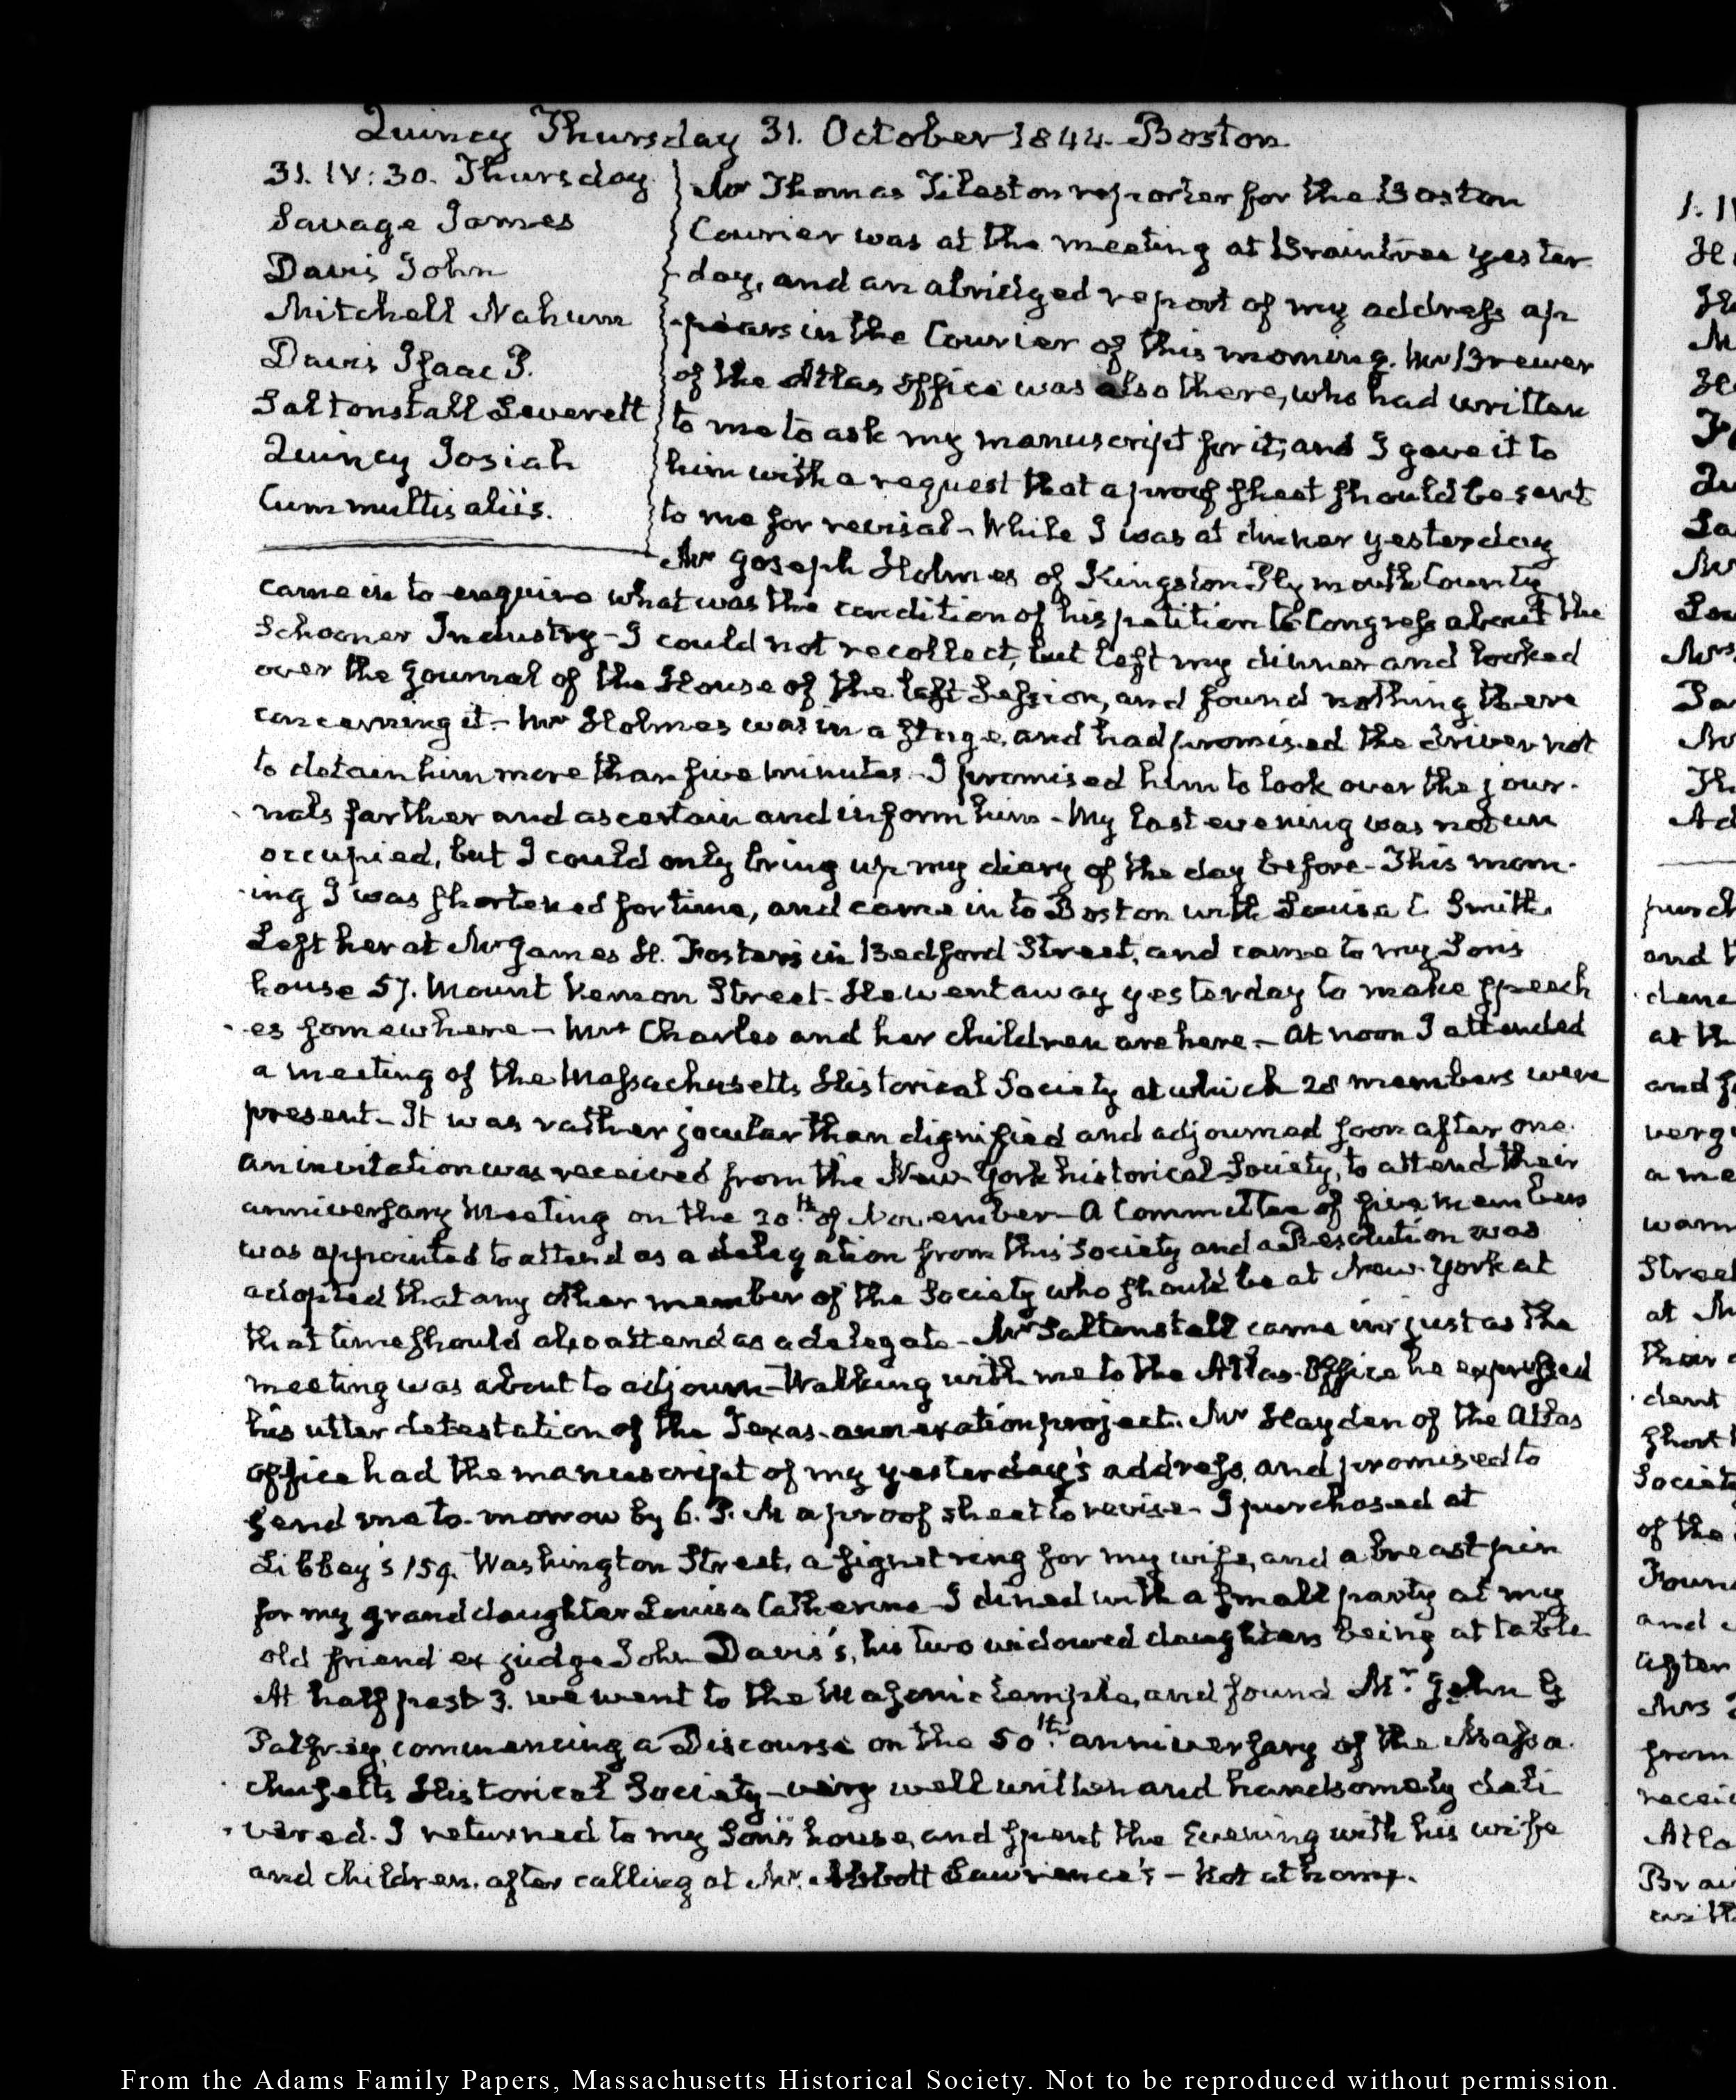 Quincy Thursday 31. October 1844. Boston
31. IV:30. Thursday
Savage James
Davis John
Mitchell Nahum
Davis Isaac P.
Saltonstall Leverett
Quincy Josiah
Cum multis aliis.
Mr Thomas Tileston reporter for the Boston
Courier was at the meeting at Braintree yester
day, and an abridged report of my address ap
pears in the Courier of this morning. Mr Brewer
of the Atlas Office was also there, who had written
to me to ask my manuscript for it, and I gave it to
him with a request that a proof sheet should be sent
to me for revisal - While I was at dinner yesterday
Mr Joseph Holmes of Kingston Plymouth County
came in to enquire what was the condition of his petition to Congress about the
Schooner Industry - I could not recollect, but left my dinner and looked
over the Journal of the House of the last Session, and found nothing there
concerning it - Mr Holmes was in a Stage, and had promised the driver not
to detain him more than five minutes - I promised him to look over the jour-
nals farther and ascertain and inform him - My last evening was not un
occupied, but I could only bring up my diary of the day before - This morn-
-ing I was shortened for time, and came in to Boston with Louisa C. Smith.
Left her at Mr James H. Foster's in Bedford Street, and came to my Sons
house 57. Mount Vernon Street - He went away yesterday to make speech
-es somewhere - Mrs Charles and her children are here - At noon I attended
a meeting of the Massachusetts Historical Society at which 28 members were
present - It was rather jocular than dignified and adjourned soon after one.
An invitation was received from the New-York historical Society, to attend their
anniversary Meeting on the 20th. of November - A Committee of five members
was appointed to attend as a delegation from this Society and a Resolution was
adopted that any other member of the Society who should be at New-York at
that time should also attend as a delegate - Mr Saltonstall came in just as the
meeting was about to adjourn - Walking with me to the Atlas-Office he expressed
his utter detestation of the Texas-annexation project. Mr Hayden of the Atlas
office had the manuscript of my yesterday's address, and promised to
send me to-morrow by 6. P.M a proof sheet to revise - I purchased at
Libbey's 159. Washington Street, a signet ring for my wife, and a breast pin
for my granddaughter Louisa Catherine - I dined with a small party at my
old friend ex judge John Davis's, his two widowed daughters being at table
At half past 3. we went to the Masonic temple, and found Mr. John G
Palfrey, commencing a Discourse on the 50th. anniversary of the Massa
chusetts Historical Society - very well written and handsomely deli
-vered. I returned to my Son's house, and spent the Evening with his wife
and children. after calling at Mr. Abbott Lawrence's - Not at home.
1. I
purch
and
at th
a me
at M
of the
and
After
Mrs
from
From the Adams Family Papers, Massachusetts Historical Society. Not to be reproduced without permission.